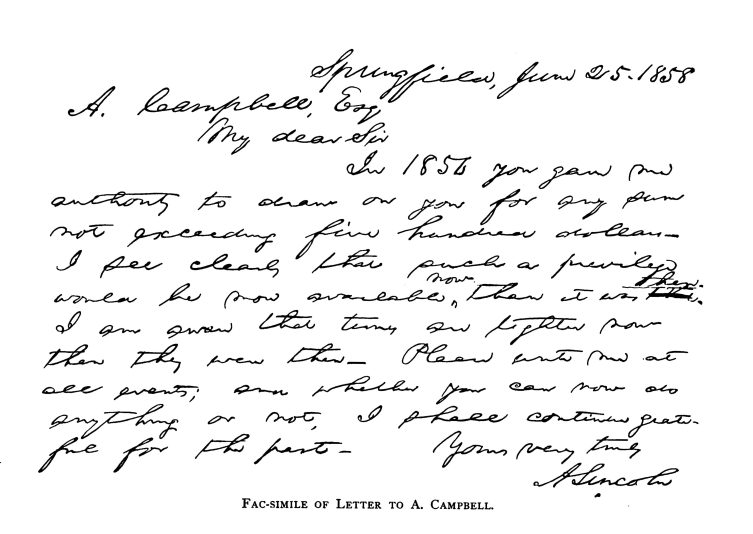 Springfield, June 25. 1858
A. Campbell, Esq
My dear Sir
In 1856 you gave me
authority to draw on you for any sum
not exceeding five hundred dollars—
I see clearly that such a previlege
would be more available, now than it was then.
I am aware that times are tighter now
than they were then— Please write me at
all events; and whether you can now do
anything or not, I shall continue grate-
ful for the past— Yours very truly
A. Lincoln
FAC-SIMILE OF LETTER TO A. CAMPBELL.